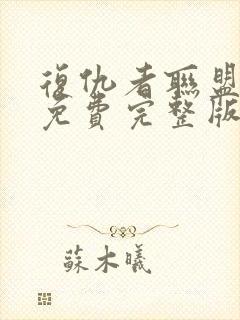 復仇者聯盟
免費完整版
蘇木曦